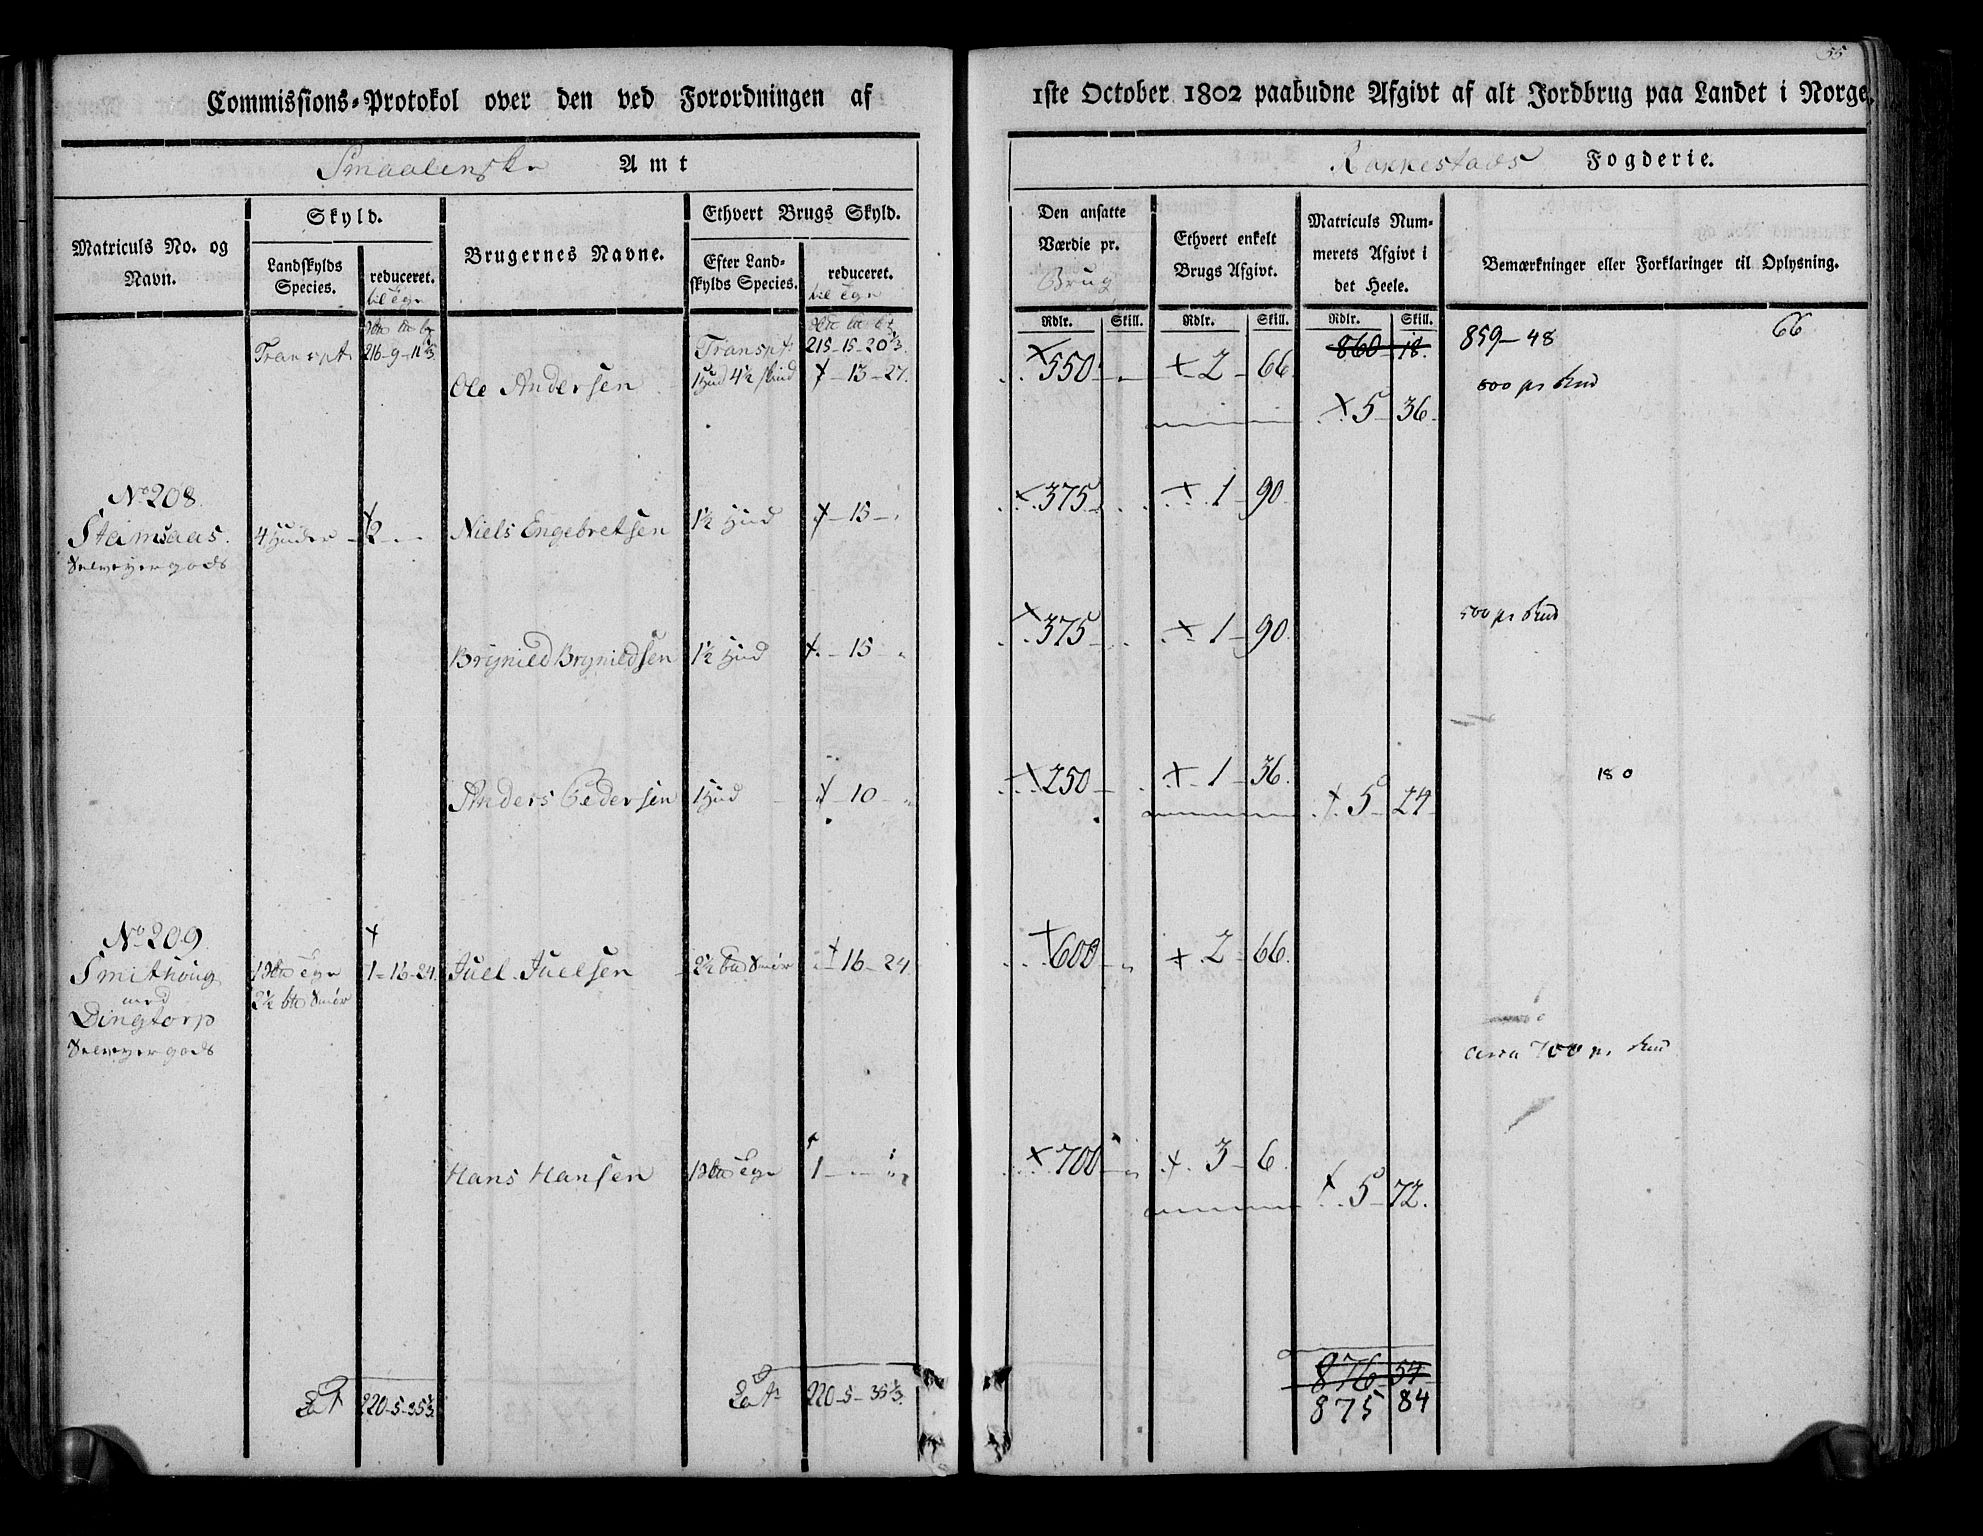 55
Commissions-Protokol over den ved Forordningen af 1ste October 1802 paabudne Afgivt af alt Jordbrug paa Landet i Norge.
Smaalenske Amt
Rakkestads Fogderie.
Matriculs No. og Navn.
Skyld.
Landskylds Species.
reduceret. til Tgn
Brugernes Navne.
Ethvert Brugs Skyld.
Efter Landskylds Species.
reduceret. til Tgn
Den ansatte Værdie pr. Brug
Ethvert enkelt Brugs Afgivt.
Matriculs Nummerets Afgivt i det Heele.
Bemærkninger eller Forklaringer til Oplysning.
Rdlr. Skill. Rdlr. Skill. Rdlr. Skill.
Transpt 216-9-11 1/3 Transpt 215-15-20 1/3 860 18. 859-48 66
Ole Andersen 1 Hud 4½ skind 13-27. 550 2-66 500 pr Hud
5 36
No 208.
Stamsaas. 4 Huder 2 Niels Engebretsen 1½ Hud 15 375 1-90
Selveyergods
Brynild Brynildsen 1½ Hud 15 375 1-90 500 pr Hud
Anders Pedersen 1 Hud 10 250 1-36. 180
5 24
No 209
Smithoug 1 Tgn 1-16-24 Juel Juelsen 2½ Smør 16-24 600 2-66
med 2½ Smør
Dingtorp
Selveyergods
circa 700 pr Hud
Hans Hansen 1 Tgn 1 700 3-6
5-72.
876 54
Lat 220-5-35 1/3 Lat 220-5-35 1/3 875 84